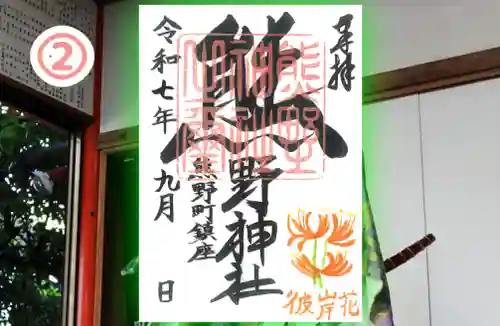 ②
奉拝
熊野神社
熊野町鎮座
令和七年九月 日
熊野神社
彼岸花